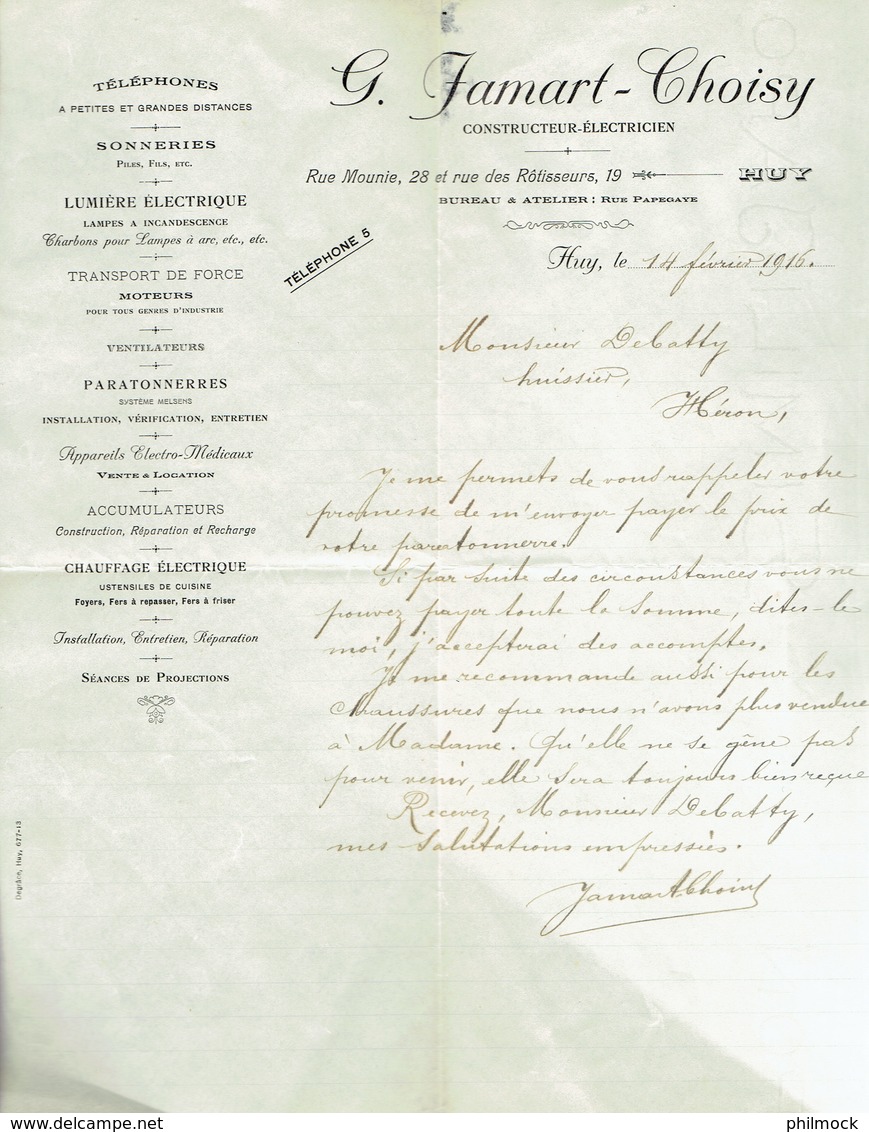 TÉLÉPHONES
A PETITES ET GRANDES DISTANCES
SONNERIES
PILES, FILS, ETC.
LUMIÈRE ÉLECTRIQUE
LAMPES A INCANDESCENCE
Charbons pour Lampes à arc, etc., etc.
TRANSPORT DE FORCE
MOTEURS
POUR TOUS GENRES D'INDUSTRIE
VENTILATEURS
PARATONNERRES
SYSTÈME MELSENS
INSTALLATION, VÉRIFICATION, ENTRETIEN
Appareils Electro-Médicaux
VENTE & LOCATION
ACCUMULATEURS
Construction, Réparation et Recharge
CHAUFFAGE ÉLECTRIQUE
USTENSILES DE CUISINE
Foyers, Fers à repasser, Fers à friser
Installation, Entretien, Réparation
SÉANCES DE PROJECTIONS
Degrâce, Huy, 677-13
G. Jamart-Choisy
CONSTRUCTEUR-ÉLECTRICIEN
Rue Mounie, 28 et rue des Rôtisseurs, 19 HUY
BUREAU & ATELIER : RUE PAPEGAYE
TÉLÉPHONE 5
Huy, le 14 février 1916.
Monsieur Debatty
huissier,
Héron,
Je me permets de vous rappeler votre
promesse de m'envoyer payer le prix de
votre paratonnerre.
Si par suite des circonstances vous ne
pouvez payer toute la somme, dites-le
moi, j'accepterai des accomptes.
Je me recommande aussi pour les
chaussures que nous n'avons plus vendue
à Madame. Qu'elle ne se gêne pas
pour venir, elle sera toujours bien reçue
Recevez, Monsieur Debatty,
mes salutations empressées.
Jamart-Choisy
philmock